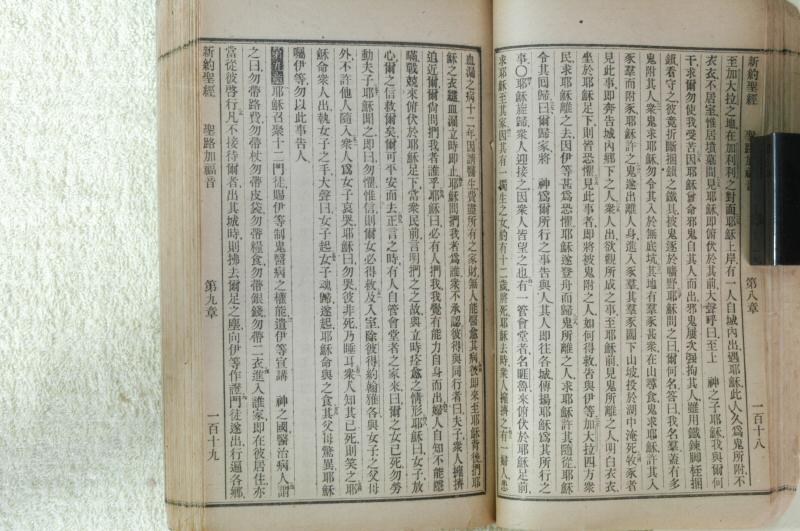 新約聖經 聖路加福音 第八章 一百十八
至加大拉之地在加利利之對面耶穌上岸有一人自城內出遇耶穌此人久爲鬼所附不
衣衣不居室惟居墳墓間見耶穌即俯伏於其前大聲呼曰至上 神之子耶穌我與爾何
干求爾勿使我受苦因耶穌曾命邪鬼自其人而出邪鬼屢次强拘其人雖用鐵鍊脚桎捆
鎖看守之彼竟折斷捆鎖之鐵具被鬼逐於曠野耶穌問之曰爾何名答曰我名羣蓋有多
鬼附其人衆鬼求耶穌勿令其入於無底坑其地有羣豕甚衆在山尋食鬼求耶穌許其入
豕羣而附豕耶穌許之鬼遂出離人身進入豕羣其羣豕闖下山坡投於湖中淹死牧豕者
見此事即奔告城內鄉下之人衆人出欲觀所成之事至耶穌前見鬼所離之人明白衣衣
坐於耶穌足下則皆恐懼見此事者即將被鬼附之人如何得救告與伊等加大拉四方衆
民求耶穌離之去因伊等甚爲恐懼耶穌遂登舟而歸鬼所離之人求耶穌許其隨從耶穌
令其囘歸曰爾歸家將 神爲爾所行之事告與人其人即往各城傳揚耶穌爲其所行之
事○耶穌旋歸衆人迎接之因衆人皆望之也有一管會堂者名睚魯來俯伏於耶穌足前
求耶穌至其家因其有一獨生之女約有十二歲將死耶穌去時衆人擁擠之有一婦人患
血漏之病十二年因請醫生費盡所有之家財無人能醫愈其病彼即來至耶穌背後捫耶
穌之衣繸血漏立時即止耶穌問捫我者爲誰衆不承認彼得與同行者曰夫子衆人擁擠
迫近爾爾尙問捫我者誰乎耶穌曰必有人捫我我覺有能力自身而出婦人自知不能隱
瞞戰兢來俯伏於耶穌足下當衆民前言明捫之之故與立時痊愈之情形耶穌曰女子放
心爾之信救爾矣爾可平安而去正言之時有人自管會堂者之家來曰爾之女已死勿勞
動夫子耶穌聞之即曰勿懼惟信則爾女必得救及入室除彼得約翰雅各與女子之父母
外不許他人隨入衆人爲女子哀哭耶穌曰勿哭彼非死乃睡耳衆人知其已死則笑之耶
穌命衆人出執女子之手大聲曰女子起女子魂歸遂起耶穌命與之食其父母驚異耶穌
囑伊等勿以此事告人
第九章 耶穌召聚十二門徒賜伊等制鬼醫病之權能遣伊等宣講 神之國醫治病人謂
之曰勿帶路費勿帶杖勿帶皮袋勿帶糧食勿帶銀錢勿帶二衣進入誰家即在彼居住亦
當從彼啓行凡不接待爾者出其城時則拂去爾足之塵向伊等作證門徒遂出行遍各鄉
新約聖經 聖路加福音 第九章 一百十九